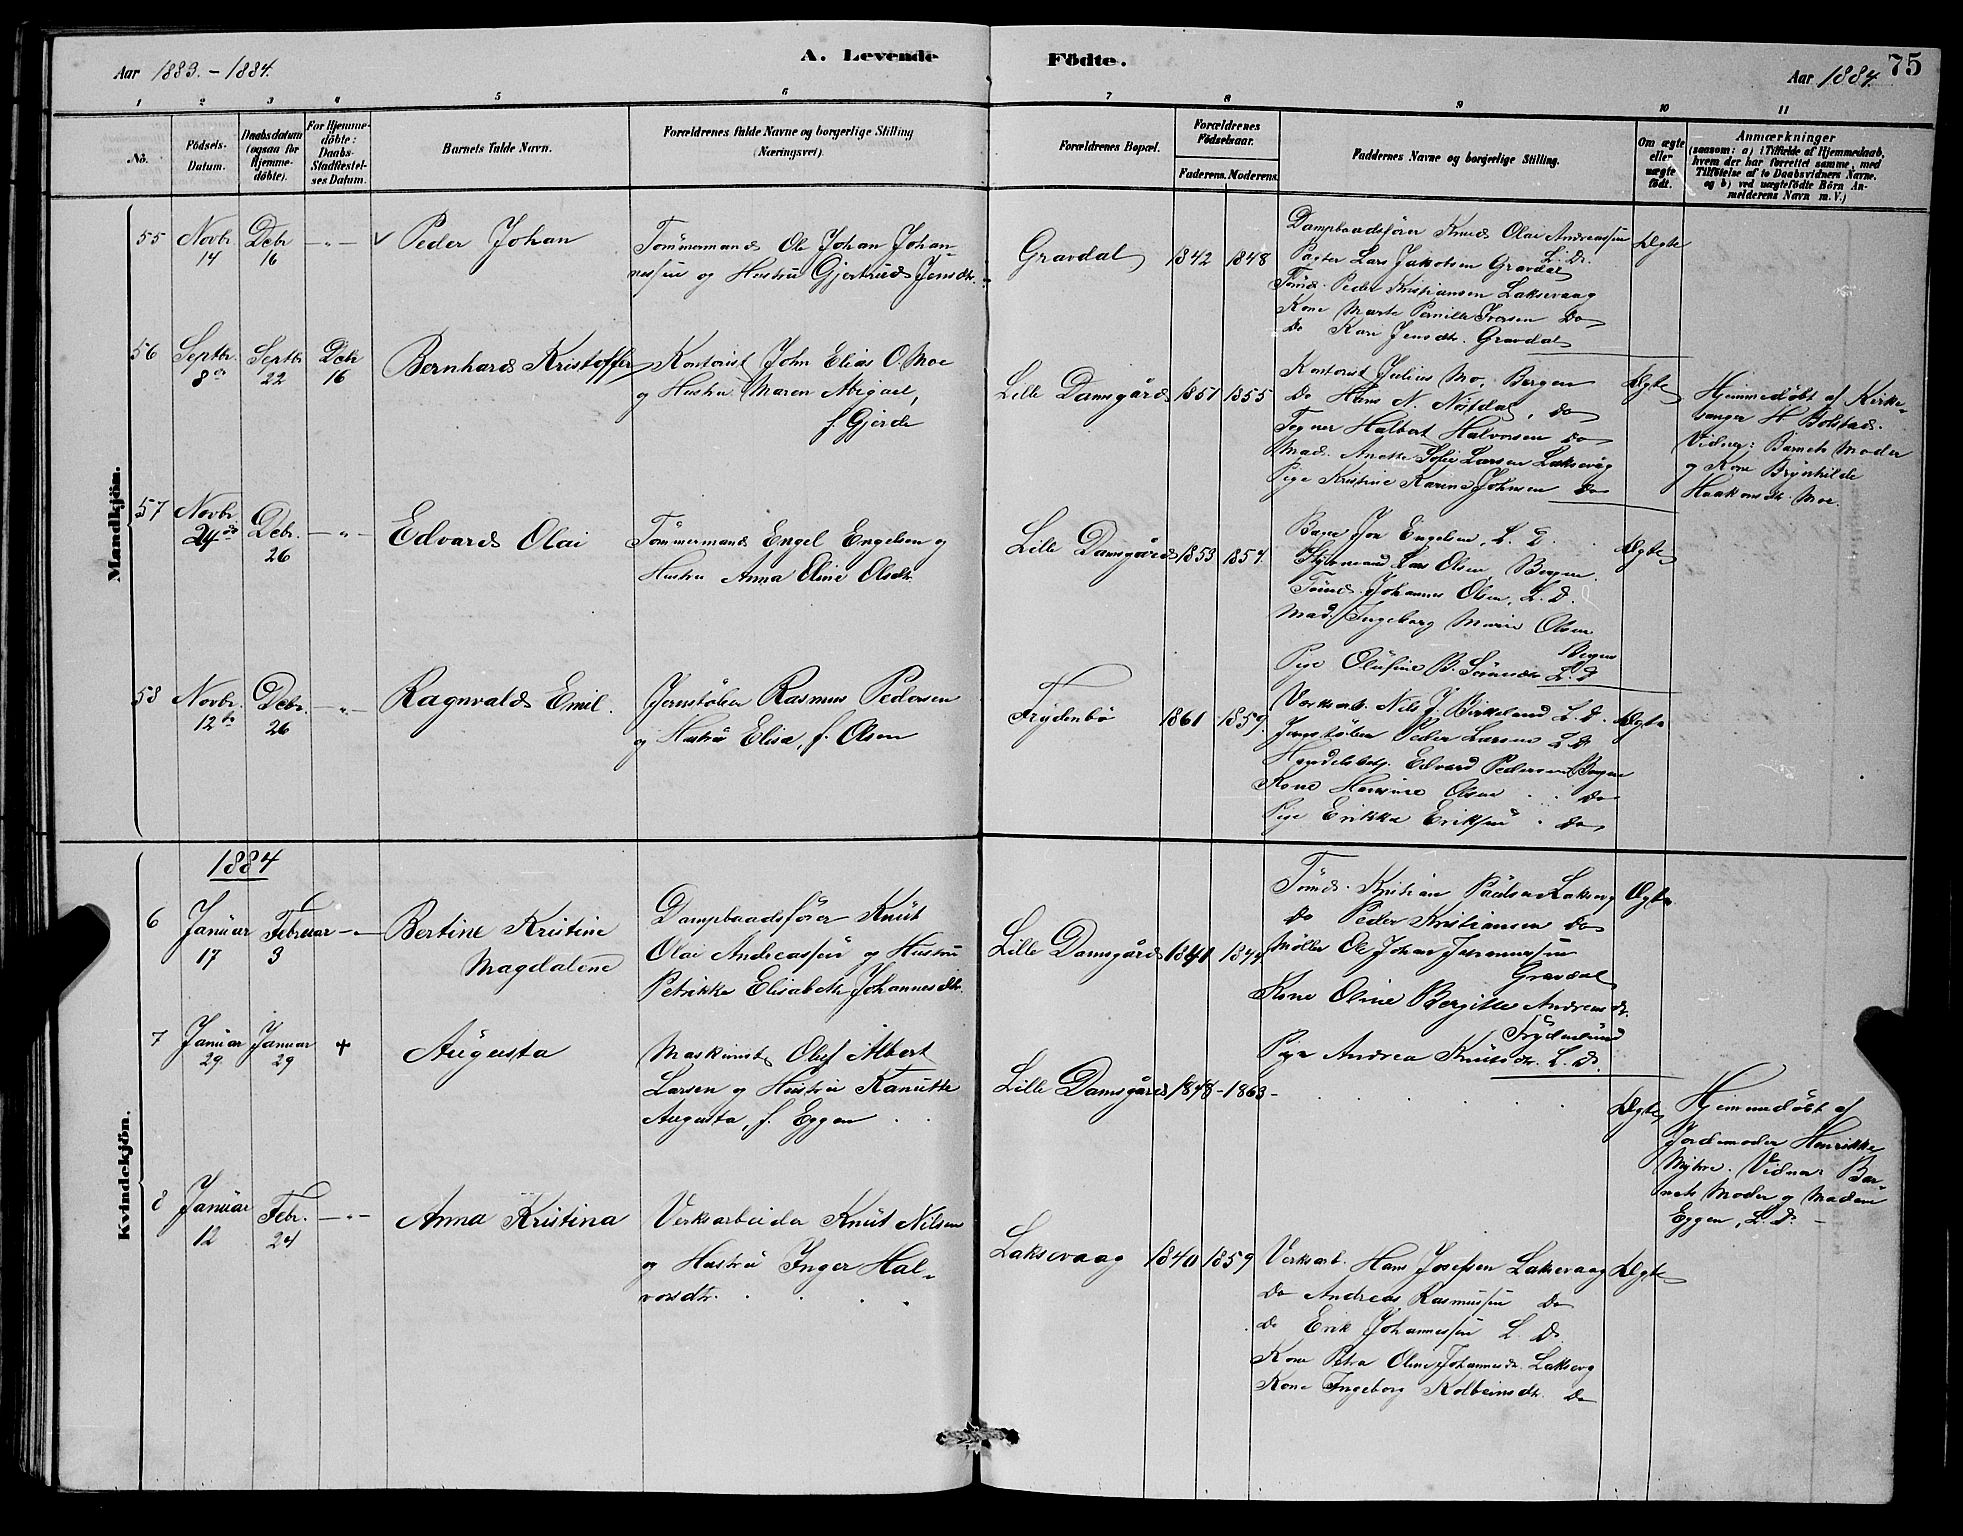 Aar 1883. - 1884.
A. Levende Födte.
Aar 1884.
75
1 2 3 4 5 6 7 8 9 10 11
No.
Födsels-
Datum.
Daabsdatum
(ogsaa for
Hjemme-
döbte).
For Hjemme-
döbte:
Daabs-
Stadfæstel-
ses Datum.
Barnets fulde Navn.
Forældrenes fulde Navne og borgerlige Stilling
(Næringsvei).
Forældrenes Bopæl.
Forældrenes
Födselsaar.
Faderens. Moderens.
Faddernes Navne og borgerlige Stilling.
Om ægte
eller
uægte
födt.
Anmærkninger
(saasom: a) i Tilfælde af Hjemmedaab,
hvem der har forrettet samme, med
Tilföielse af to Daabsvidners Navne.
og b) ved uægtefödte Börn An-
melderens Navn m. V.)
Mandkjön.
55
Novbr.
14
Debr
16
- " -
Peder Johan
Tømmermand Ole Johan Johan-
nessen og Hustru Gjertrud Jensdtr.
Gravdal
1842
1848
Dampbaadsfører Knud Olai Andreassen
L. D.
Pagter Lars Jakobsen Gravdal
Tømd. Peder Kristiansen Laksevaag
Kone Marte Pernille Iversen Do
Do Kari Jensdtr. Gravdal
Ægte
56
Septbr.
8de
Septbr
22
Debr
16
Bernhard Kristoffer
Kontorist John Elias O. Moe
og Hustru Maren Abigael,
f. Gjerde
Lille Damsgård
1851
1855
Kontorist Julius Mo, Bergen
Do Hans N. Nøstdal, do
Tegner Halbert Halvorsen do
Mad. Anette Sofie Larsen Laksevåg
Pige Kristine Karine Johnsen do
Ægte
Hjemmedøbt af Kirke-
sanger H Bolstad.
Vidner: Barnets Moder
og Kone Brynhilde
Haakonsdtr. Moe.
57
Novbr
24de
Debr.
26
- " -
Edvard Olai
Tømmermand Engel Engelsen og
Hustru Anna Oline Olsdtr.
Lille Damsgård
1853
1854.
Jon Engelsen, L. D.
Styrmand Lars Olsen Bergen.
Tømd. Johannes Olsen, L. D.
Mad. Ingeborg Marie Olsen
Bergen
Pige Olufine B. L. D
Ægte
58
Novbr.
12te
Debr.
26
- " -
Ragnvald Emil.
Jernstøber Rasmus Pedersen
og Hustru Elise, f. Olsen
Frydenbø
1861
1859.
Verksarb. Nils J. Birkeland L. D.
Jernstøber Peder Larsen L D
Handelsbetj. Edvard Pedersen Bergen
Kone Olsen . . Do
Pige Erikka Eriksen . Do
Ægte
Kvindekjön.
1884
6
Januar
17
Februar
3
Bertine Kristine
Magdalene
Dampbaadsfører Knut
Olai Andreassen og Hustru
Petrikke Elisabeth Johannesdtr.
Lille Damsgård
1841
1844
Tømd. Kristian Paulsen Laksevg
Do Peder Kristiansen Do
Møller Ole Johan Johannessen
Gravdal
Kone Oline Bergitte Andreasdtr.
Frydenlund
Pige Andrea Knutsdtr. L. D.
Ægte
7
Januar
29
Januar
29
+
Augusta
Maskinist Oluf Albert
Larsen og Hustru Kanutte
Augusta, f. Eggen . .
Lille Damsgård
1848 - 1863 -
Ægte
Hjemmedøbt af
Jordemoder Henrikke
Myhre. Vidner Bar-
nets Moder og Madam
Eggen, L. D. -
8
Januar
12
Febr.
24
- " -
Anna Kristina
Verksarbeider Knut Nilsen
og Hustru Inger Hal-
vorsdtr. . . . .
Laksevaag
1840
1859
Verksarb. Hans Josefsen Laksevaag
Do Andreas Rasmussen Do
do Erik Johannessen L. D.
Kone Petra Oline Johannesdtr. Laksevg
Kone Ingeborg Kolbeinsdtr. Do
Ægte